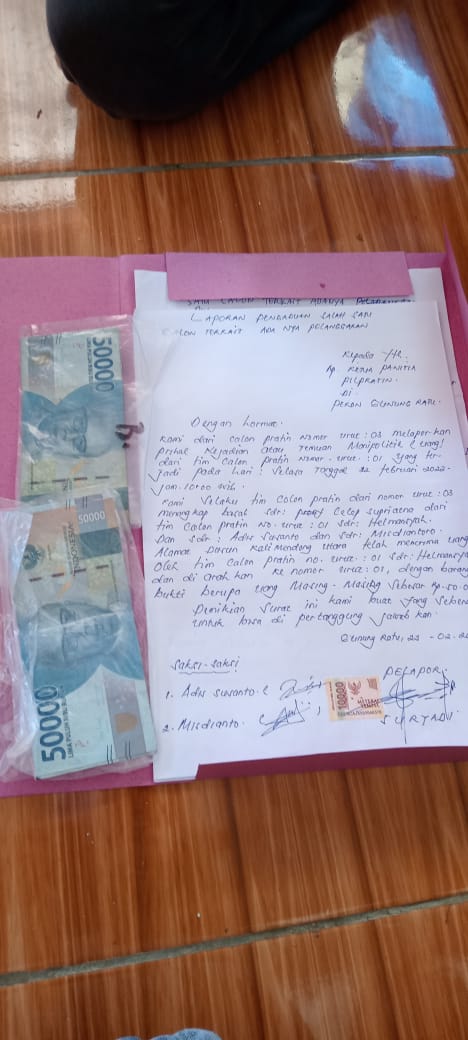 50000
50000
50000
LAPORAN PENGADUAN SALAH SATU
CALON TERKAIT ADA NYA PELANGGARAN
Kepada Yth.
Bp. KETUA PANITIA
PILPRATIN.
Di
PEKON GUNUNG RATU.
Dengan hormat.
Kami dari calon pratin nomer urut : 03 melaporkan
prihal kejadian atau temuan Manipolitik (uang)
dari tim calon pratin nomer urut : 01 yang ter-
jadi pada hari : Selasa tanggal 22 februari 2022-
jam. 10:00 wib.
Kami selaku tim calon pratin dari nomor urut : 03
menangkap basah sdr: Cecep supriatna dari
tim calon pratin no. urut : 01 sdr: Helmansyah.
Dan sdr : Adis Susanto dan sdr: Misdiantoro.
Alamat Dusun Kali Mendong utara telah menerima uang
Oleh tim calon pratin no. urut : 01 sdr: Helmansya
dan di arah kan ke nomor urut : 01, dengan barang
bukti berupa uang Masing-Masing sebesar Rp.50.0
Demikian surat ini kami buat yang seben
untuk bisa di pertanggung jawab kan.
Gunung Ratu, 23 -02-20
Saksi-saksi
PELAPOR.
1. Adis susanto
10000
METERAI
TEMPEL
2. Misdianto.
SURYADI